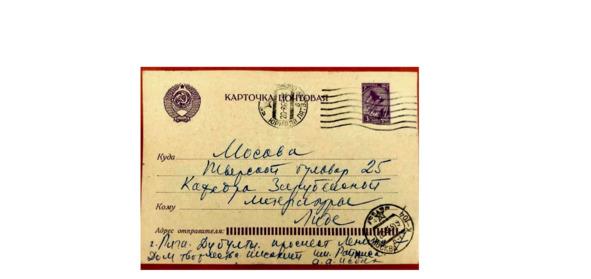 КАРТОЧКА ПОЧТОВАЯ
Куда Москва
Тверской бульвар 25
Кафедра Зарубежной
Кому Литературы
Адрес отправителя:
г. Рига. Дубулты. проспект Ленина
Дом творчества писателей им. Райниса.